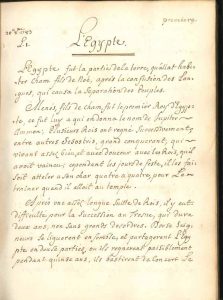 L'Egypte.
L'Egypte fut la partie de la terre, qu'alla habi-
ter Cham fils de Noé, après la confusion des Lan-
gues, qui causa la Séparation des Peuples.
Menès, fils de Cham, fut le premier Roy d'Egyp-
te, ce fut luy a qui on donna le nom de Jupiter-
Ammon. Plusieurs Rois ont regné Successivement,
entre autres Sesostris, grand conquerant, qui
vivant assez bien, et doucement avec les Rois, qu'il
avoit vaincus, cependant les jours de feste, il les fai-
soit atteler a son char quatre a quatre, pour l'en-
trainer quand il alloit au temple.
Après une assez longue Suite de Rois, il y eut
difficulté, pour la Succession au Trosne, qui dura
deux ans, non sans grands desordres. Douze Sei-
gneurs se liguerent en semble, et partagerent l'Egy-
pte en douze parties, ou ils regnerent paisiblement
pendant quinze ans, ils bastirent de concert Le